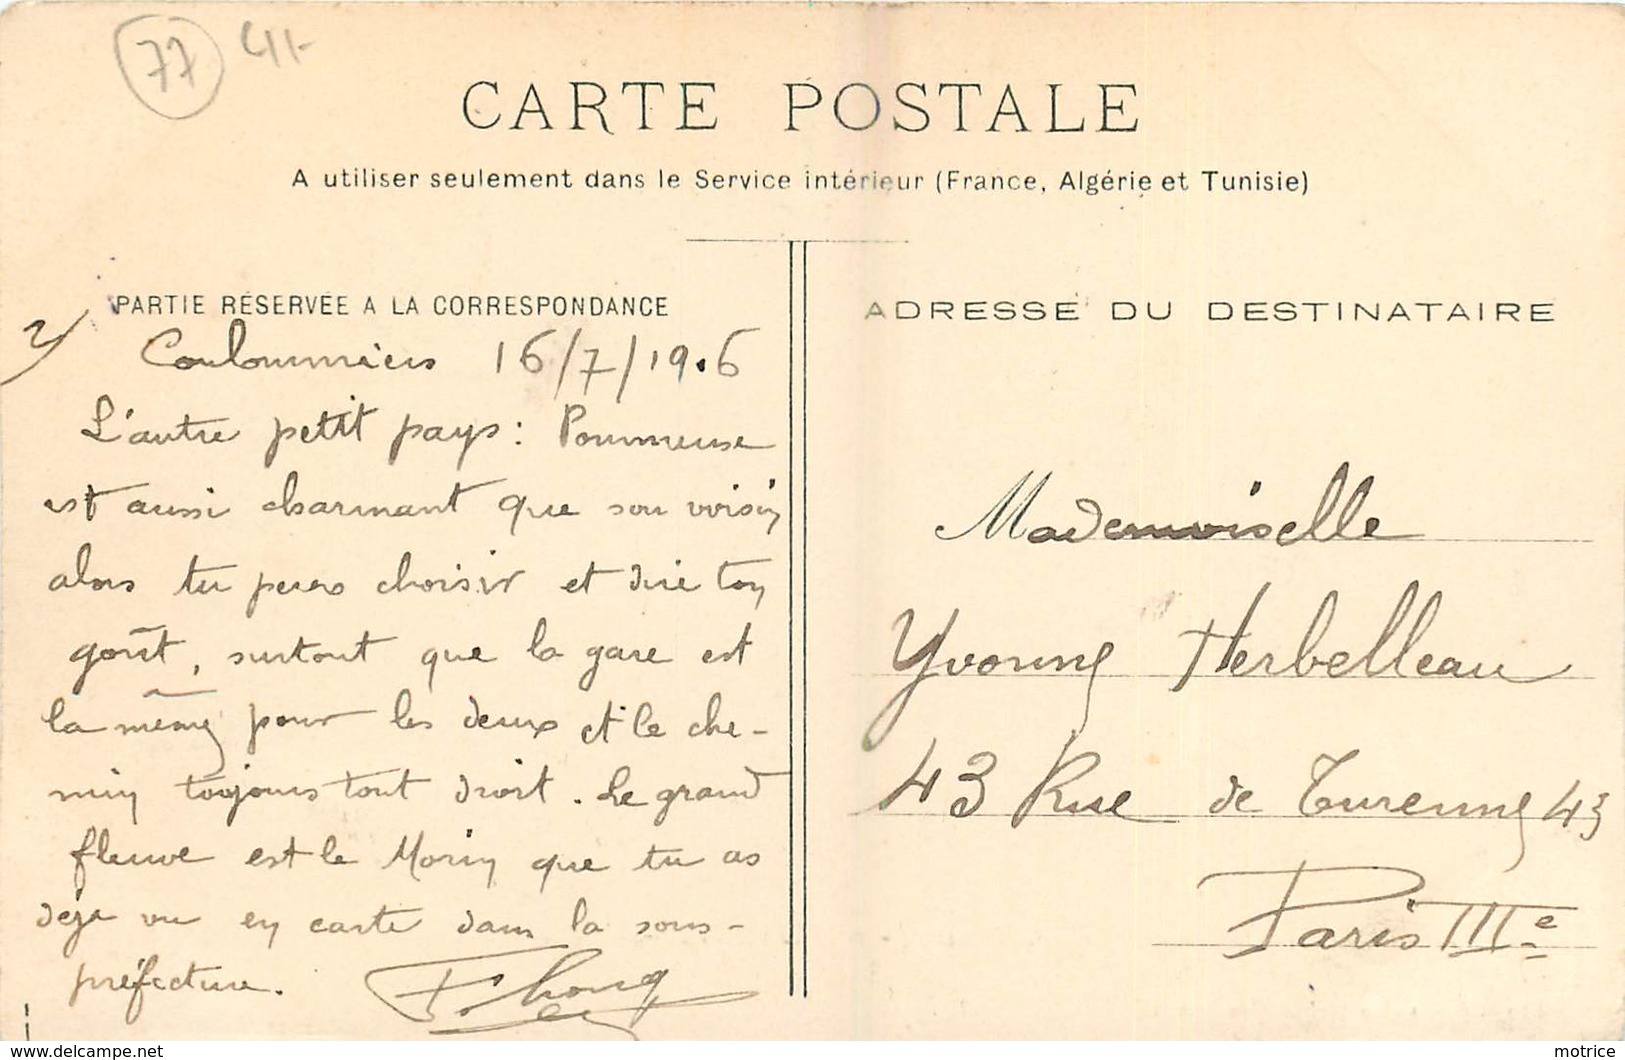 77 411-
CARTE POSTALE
A utiliser seulement dans le Service intérieur (France, Algérie et Tunisie)
PARTIE RÉSERVÉE A LA CORRESPONDANCE
Coulommiers 16/7/1906
L'autre petit pays: Pommeuse
est aussi charmant que son voisin
alors tu peux choisir et dire ton
goût, surtout que la gare est
la même pour les deux et le che-
min toujours tout droit. Le grand
fleuve est le Morin que tu as
déja vu en carte dans la sous-
préfecture.
ADRESSE DU DESTINATAIRE
Mademoiselle
Yvonne Herbelleau
43 Rue de Turenne 43
Paris IIIe
www.delcampe.net
motrice